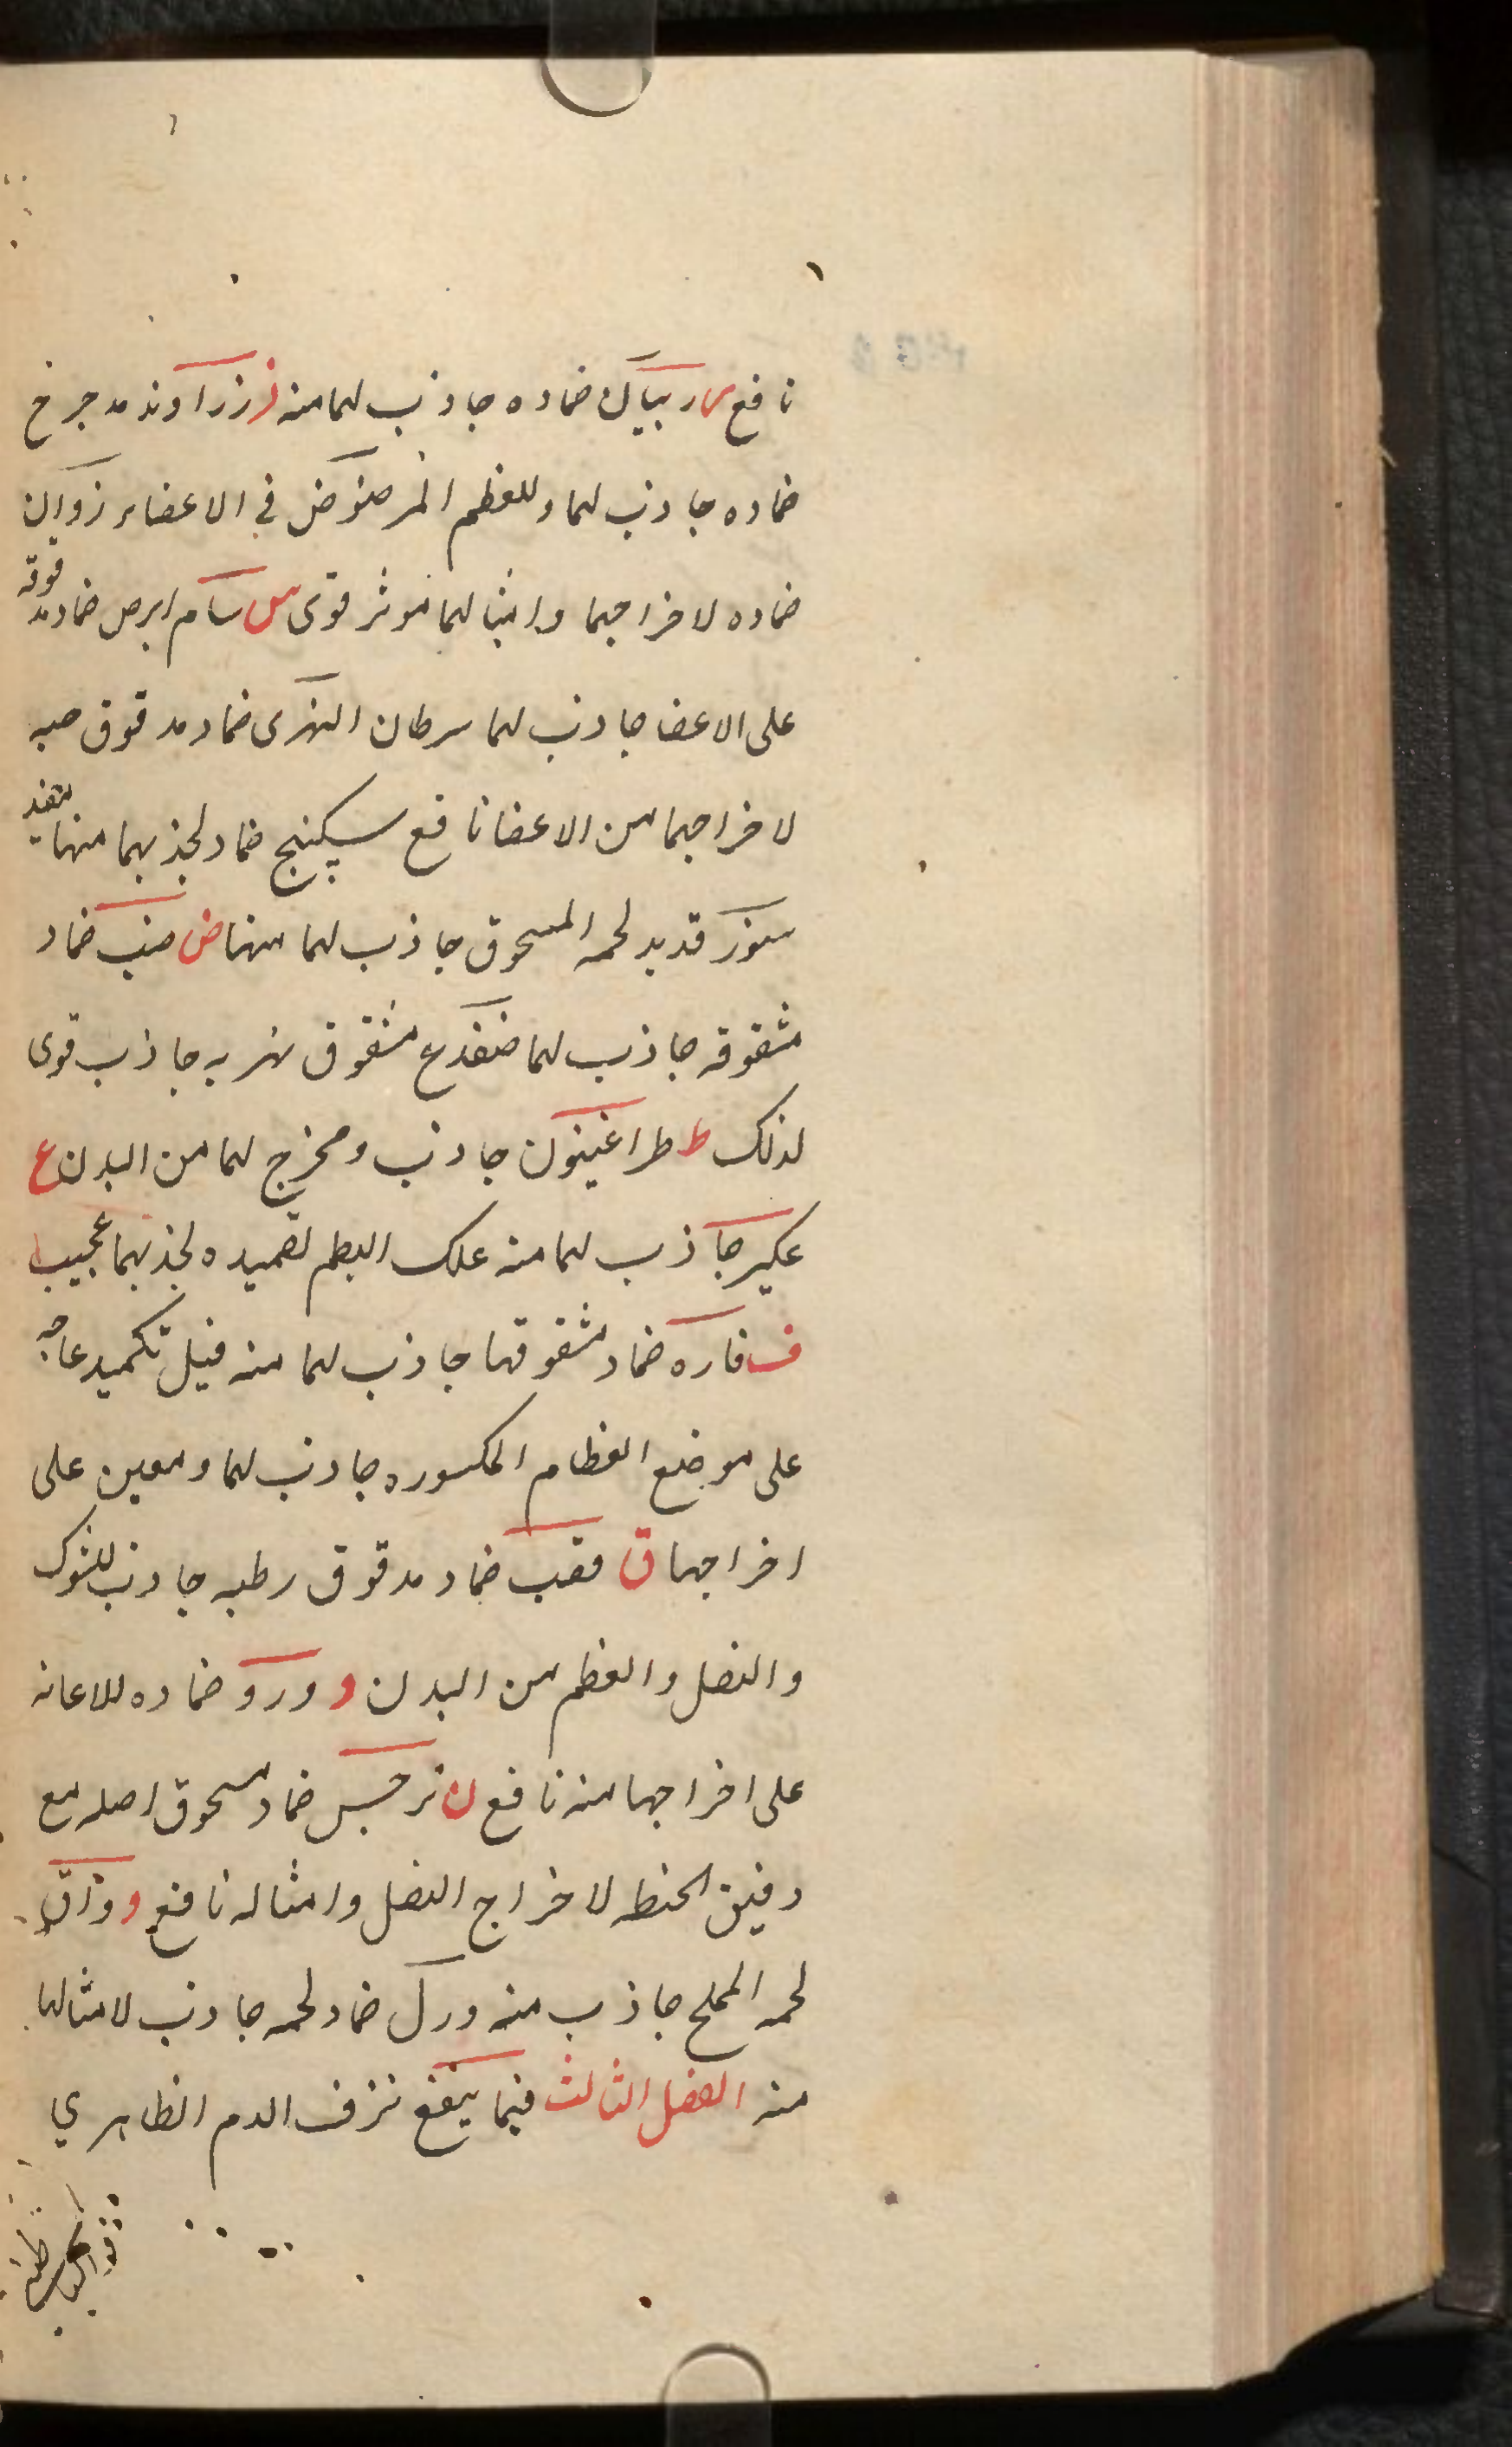 نافع ر ربيان ضماده جاذب لهما منه ز زراوند مدحرج
ضماده جاذب لهما وللعظم المرضوض في الاعضاء زوان
ضماده لاخراجهما وانبا لهما موثر قوى س سام ابرص ضماد مدقوقه
على الاعضا جاذب لهما سرطان النهرى ضماد مدقوق حيه
لاخراجهما من الاعضا نافع سكبينج ضماد لجذبهما منها مفيد
سنور قديد لحمه المسحوق جاذب لهما منها ض ضب ضماد
مشقوقه جاذب لهما ضفدع مشقوق نهريه جاذب قوى
لذلك ط طراغيون جاذب ومخرج لهما من البدن ع
عكبر جاذب لهما منه علك البطم تضميده لجذبهما عجيب
ف فاره ضماد مشقوقها جاذب لهما منه فيل تكميد عاجه
على موضع العظام المكسوره جاذب لهما ومعين على
اخراجها ق قصب ضماد مدقوق رطبه جاذب للشوك
والنصل والعظم من البدن و ورد ضماده للاعانه
على اخراجها منه نافع ن نرجس ضماد مسحوق اصله مع
دقيق الحنطه لاخراج النصل وامثاله نافع و وزاق
لحمه المملح جاذب منه ورل ضماد لحمه جاذب لامثالها
منه الفصل الثالث فيما ينفع نزف الدم الظاهري